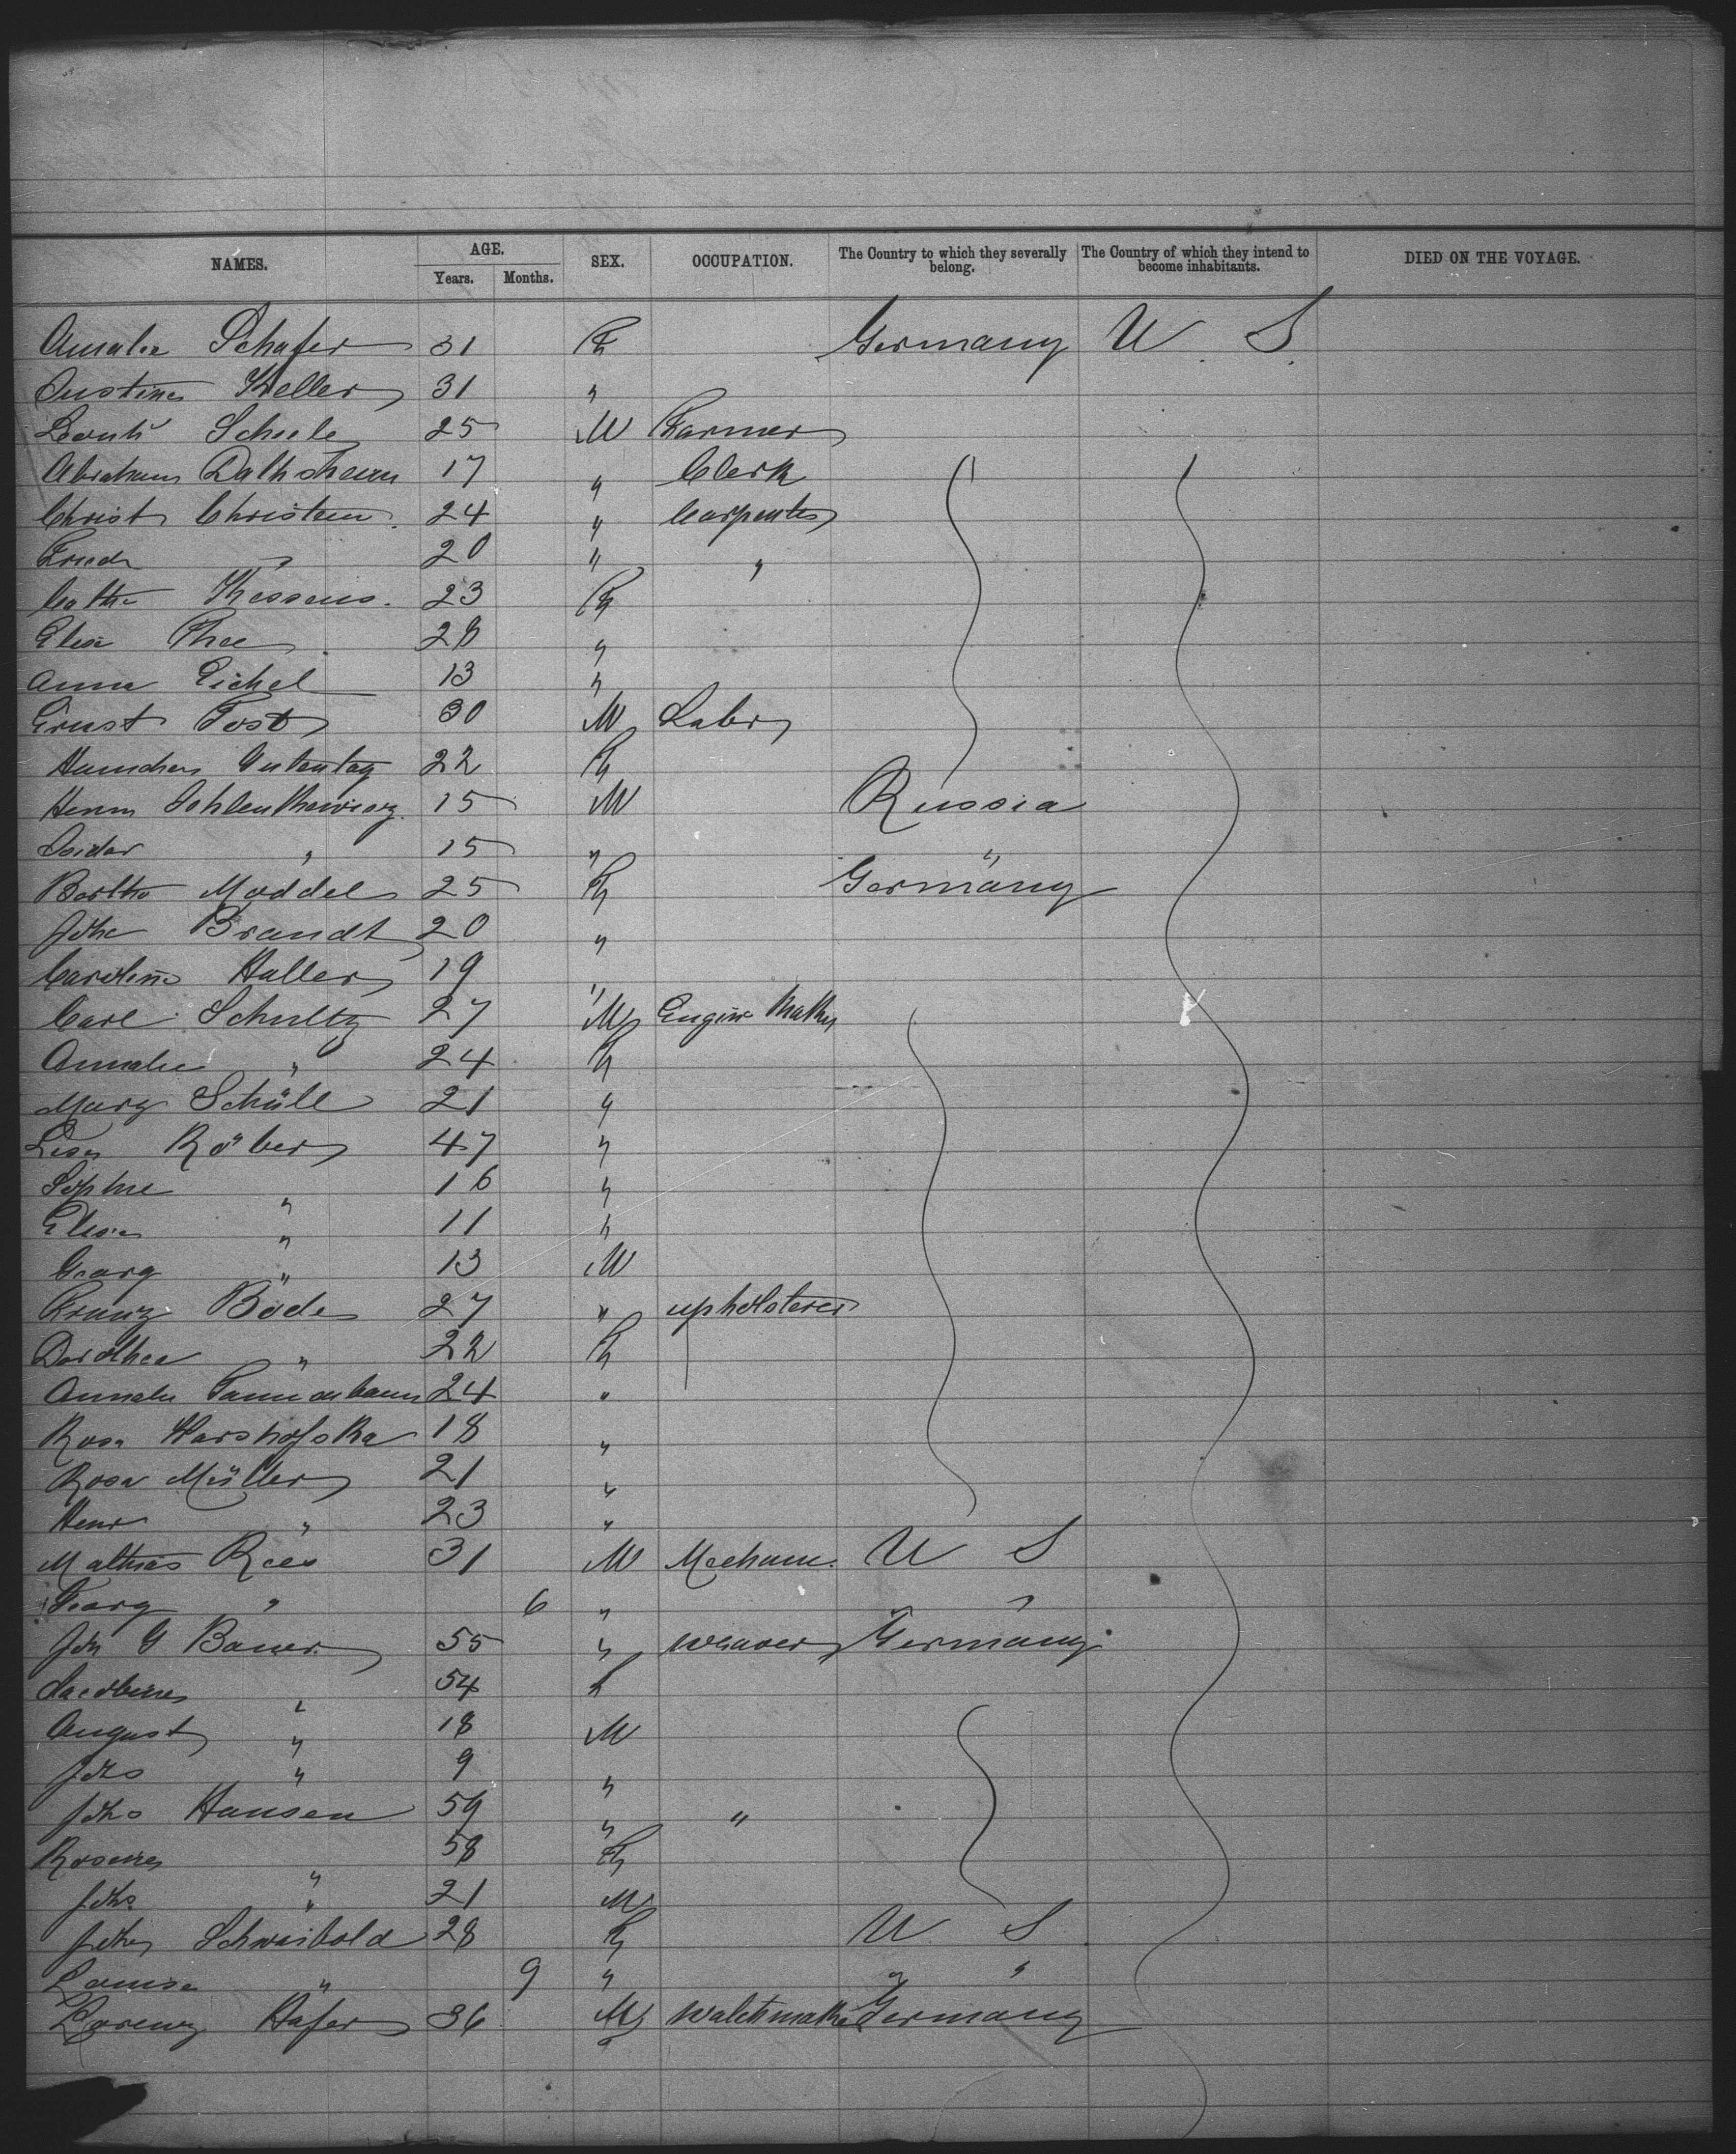 NAMES. AGE. SEX. OCCUPATION. The Country to which they severally belong. The Country of which they intend to become inhabitants. DIED ON THE VOYAGE.
Years. Months.
Amalie Schafer 31 F Germany U. S.
Justine Keller 31 "
Scheele 25 M Farmer
Abraham 17 " Clerk
Christ Christen. 24 " Carpenter
Friedr " 20 " "
Cathe Thessens. 23 F
Elise Thee 28 "
Anna Eichel 13 "
Ernst Tost 30 M Labr
Hannchen Gutentag 22 F
15 M Russia
Isidor " 15 " "
Bertha Moddel 25 F Germany
Johe Brandt 20 "
Caroline Haller 19 "
Carl Schultz 27 M Engine Maker
Amalie " 24 F
Marg Schüll 21 "
Röber 47 "
Sophie " 16 "
Elise " 11 "
Georg " 13 M
Franz Bode 27 " upholsterer
Dorothea " 22 F
Amalie Tannenbaum 24 "
Rosa Warshofska 18 "
Rosa Müller 21 "
Henr " 23 "
Mathias Rees 31 M Mechanic. U S
Georg " 6 " " "
Joh G Bauer 55 " weaver Germany
Jacobine " 54 F
August " 18 M
Johs " 9 "
Johs Hansen 59 " "
Rosine " 58 F
Johs " 21 M
Schwaibold 28 F U S
Louise " 9 " " "
Lorenz Hafer 36 M Watchmaker Germany